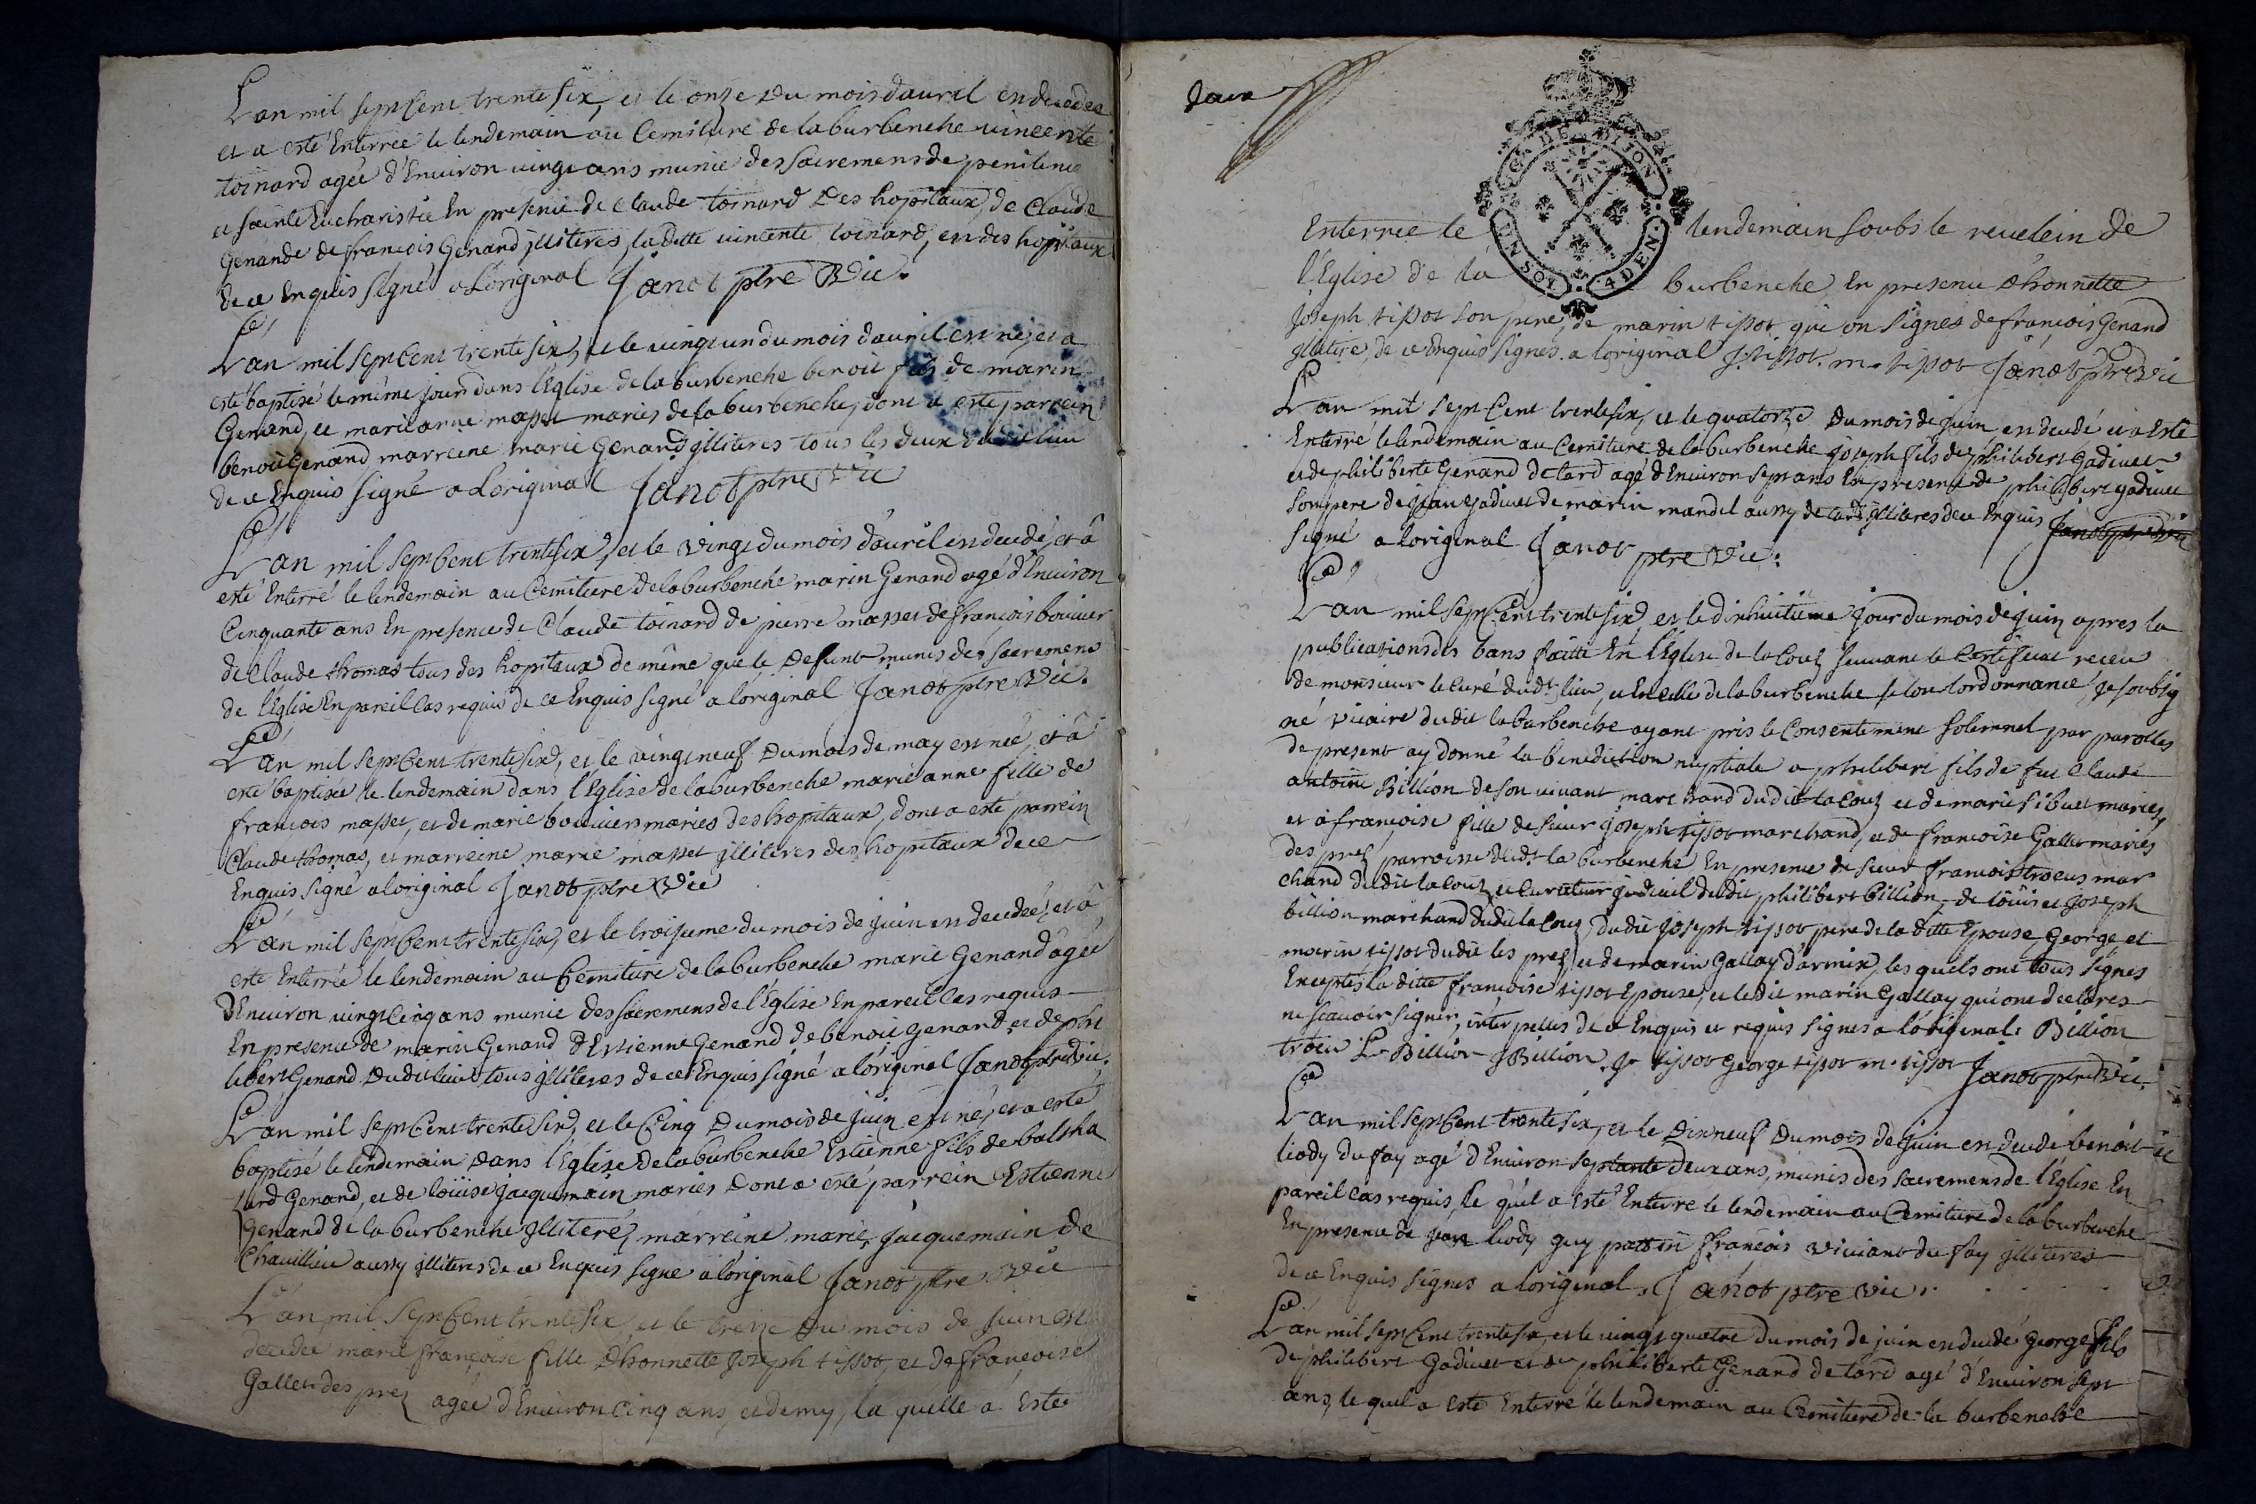 L'an mil sept Cent trente six, et le onze Du mois d'auril en decedée
et a esté Enterrée le lendemain au Cemitiere de la burbenche uincente
toinard agée d'Enuiron uingt ans munie des sacremens de penitence
et sainte Eucharistie En presence de Claude toinard Des hopitaux, de Claude
Genande de francois Genand jlliteres, la ditte uintente toinard, en des hopitaux
de ce Enquis signé a L'original Janot ptre Vic.
L'an mil sept Cent trente six, et le uingt un du mois d'auril est né, et a
esté baptisé le même jour dans l'Eglise de la burbenche benoit fils de marin
Genand, et marie anne masset mariés de la burbenche, dont a esté parrein
benoit Genand marreine marie Genand jlliteres tous les deux Dudit lieu
de ce Enquis signé a L'original Janot ptre Vic
L'an mil sept Cent trente six, et le vingt du mois d'auril en decedé, et a
esté Enterré le lendemain au Cemitiere de la burbenche marin Genand agé d'Enuiron
Cinquante ans En presence de Claude toinard de pierre masset de francois bouuier
de Claude thomas tous des hopitaux de même que le Defunt munis des sacremens
de l'Eglise En pareil Cas requis de ce Enquis signé a loriginal Janot ptre Vic.
L'an mil sept Cent trente six, et le uingt neuf Du mois de may est née, et a
esté baptisée le lendemain dans l'Eglise de la burbenche marie anne fille de
francois masset, et de marie bouuier mariés des hopitaux, dont a esté parrein
Claude thomas, et marreine marie masset jlliteres des hopitaux de ce
Enquis signé a loriginal Janot ptre Vic
L'an mil sept Cent trente six, et le troisieme du mois de juin en decedée, et a
esté Enterrée le lendemain au Cemitiere de la burbenche marie Genand agée
d'Enuiron uingt Cinq ans munie des sacremens de l'Eglise En pareil Cas requis
En presence de marin Genand d'Estienne Genand de benoit Genand et de phi
libert Genand Dudit lieu tous jlliteres de ce Enquis signé a l'original Janot ptre Vic.
L'an mil sept Cent trente six, et le Cinq Du mois de juin est né, et a esté
baptisé le lendemain Dans l'Eglise de la burbenche Estienne fils de baltha
zard Genand, et de loüise jacquemain mariés Dont a esté parrein Estienne
Genand de la burbenche jlliteré, marreine marie jacquemain de
Chauillieu aussy jlliteres de ce Enquis signé a l'original Janot ptre Vic
L'an mil sept Cent trente six et le treize Du mois de juin est
decedée marie françoise fille D'honnette Joseph tissot, et de françoise
Gallet des prez agée d'Enuiron Cinq ans, et demy, la quelle a esté
douze
GE. DE. DIJON
UN SOL. 4 DEN.
Enterrée le lendemain soubs le reuelein de
l'Eglise de la burbenche En presence d'honnette
Joseph tissot son pere, de marin tissot qui on signés de francois Genand
jllitire, de ce Enquis signés a loriginal J. tissot. m. tissot Janot ptre Vic
L'an mil sept Cent trente six, et le quatorze Du mois de juin en decedé et a Esté
Enterré le lendemain au Cemitiere de la burbenche joseph fils de philibert gadiuet
et de philiberte Genand de tard agé d'Enuiron sept ans En presence de philibert gadiuet
son pere de jean gadiuet de marin mandel aussy de tard jlliteres de ce Enquis Janot ptre Vic
signé a loriginal Janot ptre Vic.
L'an mil sept Cent trente six, et le dixhuitieme jour du mois de juin apres la
publications des bans faitte En l'Eglise de la Couz suiuant le Certificat receu
de monsieur le Curé dudt lieu, et En celle de la burbenche selon lordonnance, je soubsig
né vicaire dudit la burbenche ayant pris le Consentement solemnel par parolles
de present ay donné la benediction nuptiale a philibert fils de feu Claude
antoine Billion de son uiuant marchand dudit la Couz et de marie sibuet mariés,
et a françoise fille de sieur joseph tissot marchand, et de francoise Gallet mariés
des prez parroisse dudt la burbenche En presence de sieur francois trocus mar
chand dudit la Couz et Curateur judicuil dudit philibert billion, de loüis et joseph
billion marchand dudit la Couz, dudit joseph tissot pere de la ditte Epouse, George et
marin tissot dudit les prez, et de marin Gallay d'armix, les quels ont tous signés
Exceptés la ditte françoise tissot Epouse, et ledit marin Gallay qui ont declarés
ne scauoir signer, interpellés de ce Enquis et requis signés a l'original. Billion
trocu L. Billion J Billion. J. tissot George tissot m. tissot Janot ptre Vic.
L'an mil sept Cent trente six, et le Dixneuf Du mois de juin en decedé benoit
liody du fay agé d'Enuiron septante deux ans, munis des sacremens de l'Eglise En
pareil Cas requis, le quel a Esté Enterré le lendemain au Cemitiere de la burbenche
En presence de jean liody guy pattin françois viuiant du fay jlliteres
de ce Enquis signés a loriginal. Janot ptre Vic.
L'an mil sept Cent trente six, et le uingt quatre du mois de juin en decedé George fils
de philibert Gadiuet et de philiberte Genand de tard agé d'Enuiron sept
ans, le quel a esté Enterré le lendemain au Cemitiere de la burbenche